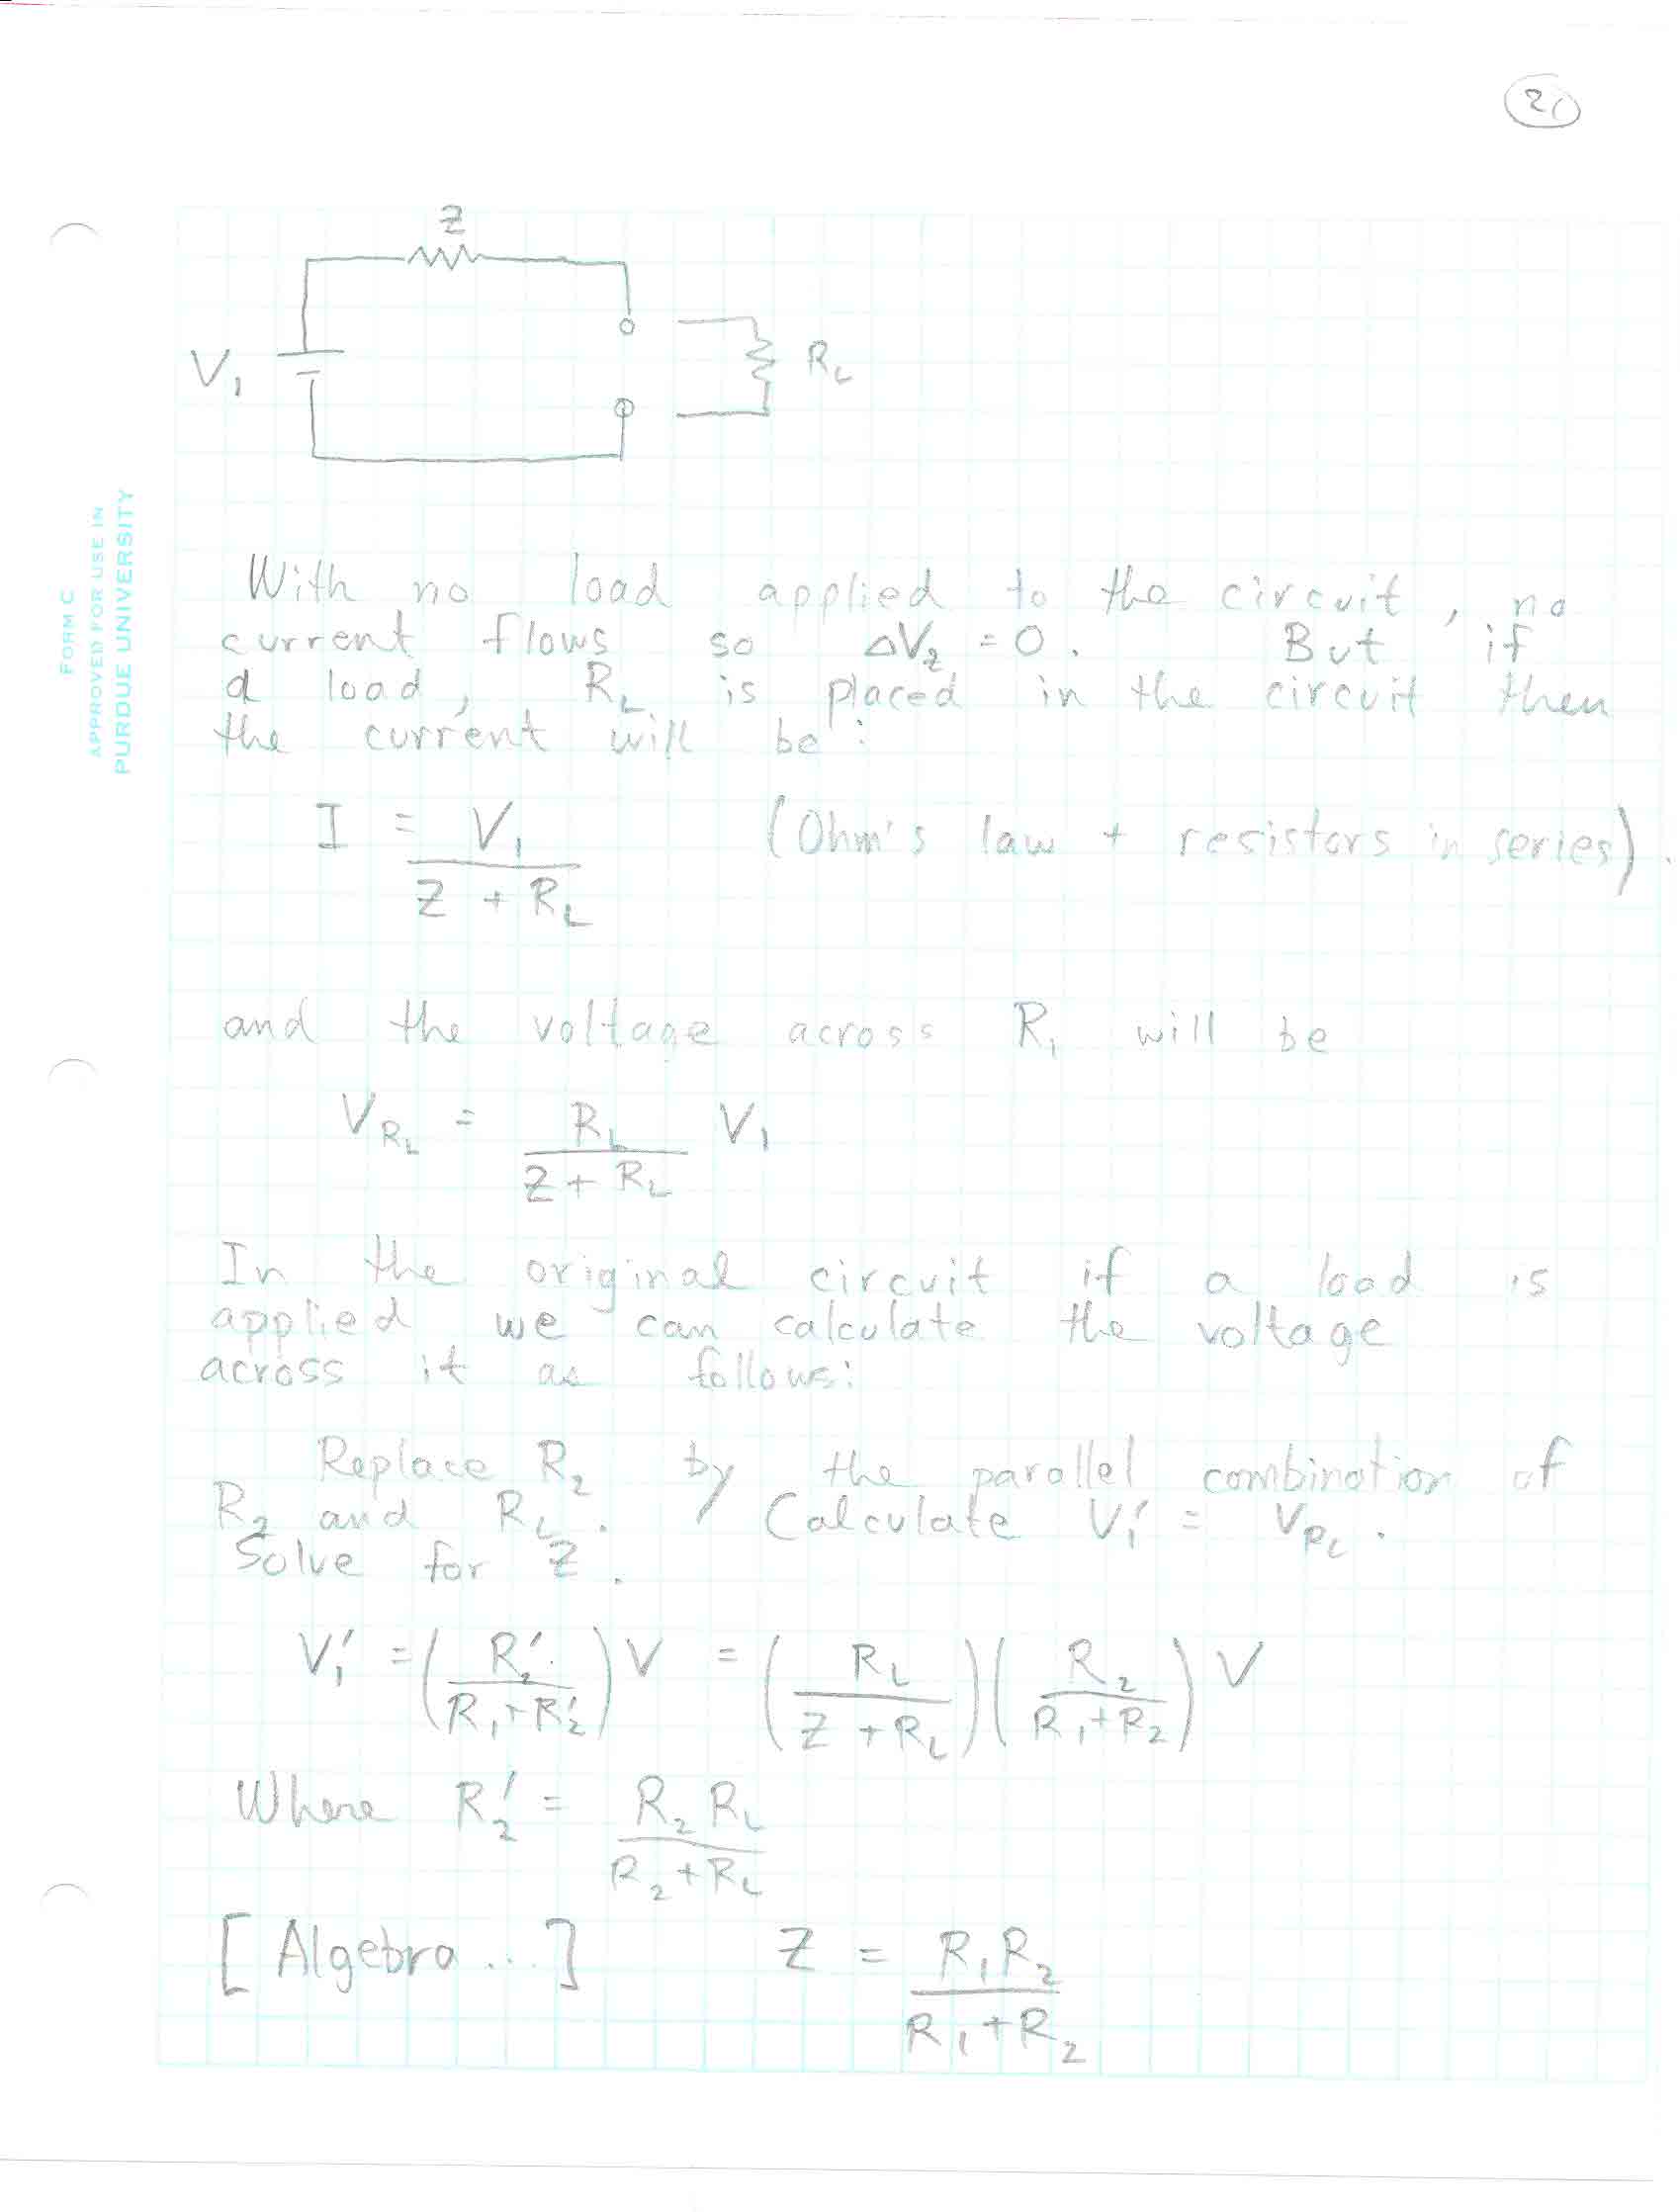 21
Z
V₁
R_L
FORM C
APPROVED FOR USE IN
PURDUE UNIVERSITY
With no load applied to the circuit, no
current flows so ΔV_Z = 0. But if
a load, R_L is placed in the circuit then
the current will be:
I = V₁ / (Z + R_L) (Ohm's law + resistors in series).
and the voltage across R₁ will be
V_{R_L} = R_L / (Z + R_L) V₁
In the original circuit if a load is
applied we can calculate the voltage
across it as follows:
Replace R₂ by the parallel combination of
R₂ and R_L. Calculate V₁' = V_{R_L}.
Solve for Z.
V₁' = (R₂' / (R₁ + R₂')) V = (R_L / (Z + R_L)) (R₂ / (R₁ + R₂)) V
Where R₂' = R₂ R_L / (R₂ + R_L)
[Algebra...] Z = R₁ R₂ / (R₁ + R₂)